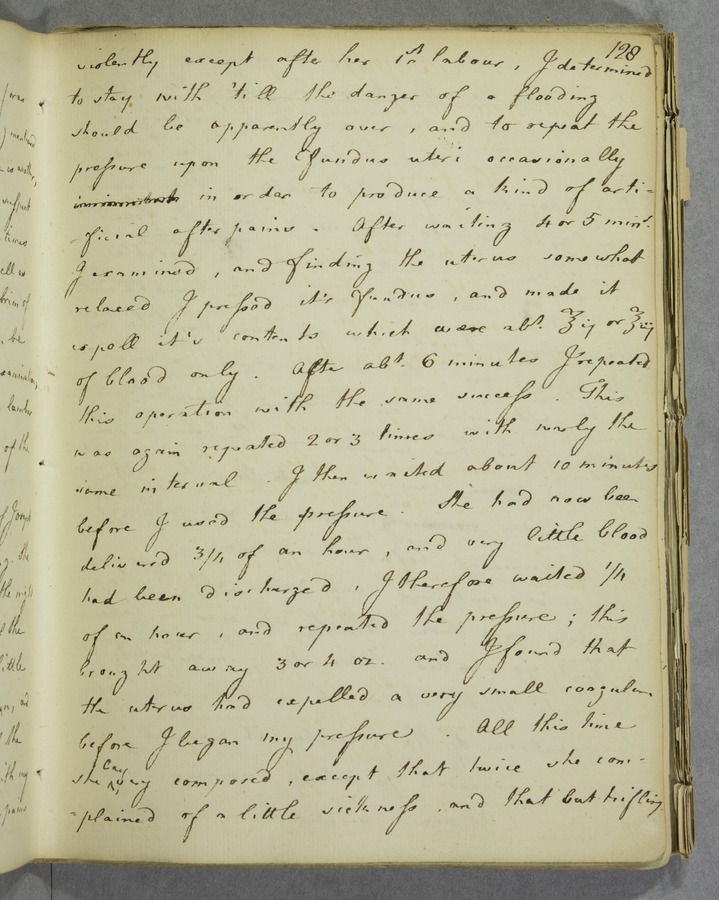 128
violently except after her 1st labour, I determined
to stay with 'till the danger of a flooding
should be apparently over, and to repeat the
preſsure upon the Fundus uteri occasionally
in order to produce a kind of arti=
ficial after pains. After waiting 4 or 5 mints.
I examined, and finding the uterus somewhat
relaxed I preſsed it's fundus, and made it
expell it's contents which were abt. ℥ij or ℥iij
of blood only. After abt. 6 minutes I repeated
this operation with the same succeſs. This
was again repeated 2 or 3 times with nearly the
same interval. I then waited about 10 minutes
before I used the preſsure. She had now been
delivered 3/4 of an hour, and very little blood
had been discharged, I therefore waited 1/4
of an hour, and repeated the preſsure; this
brought away 3 or 4 oz. and I found that
the uterus had expelled a very small coagulum
before I began my preſsure. All this time
she lay very composed, except that twice she com-
=plained of a little sickneſs, and that but trifling